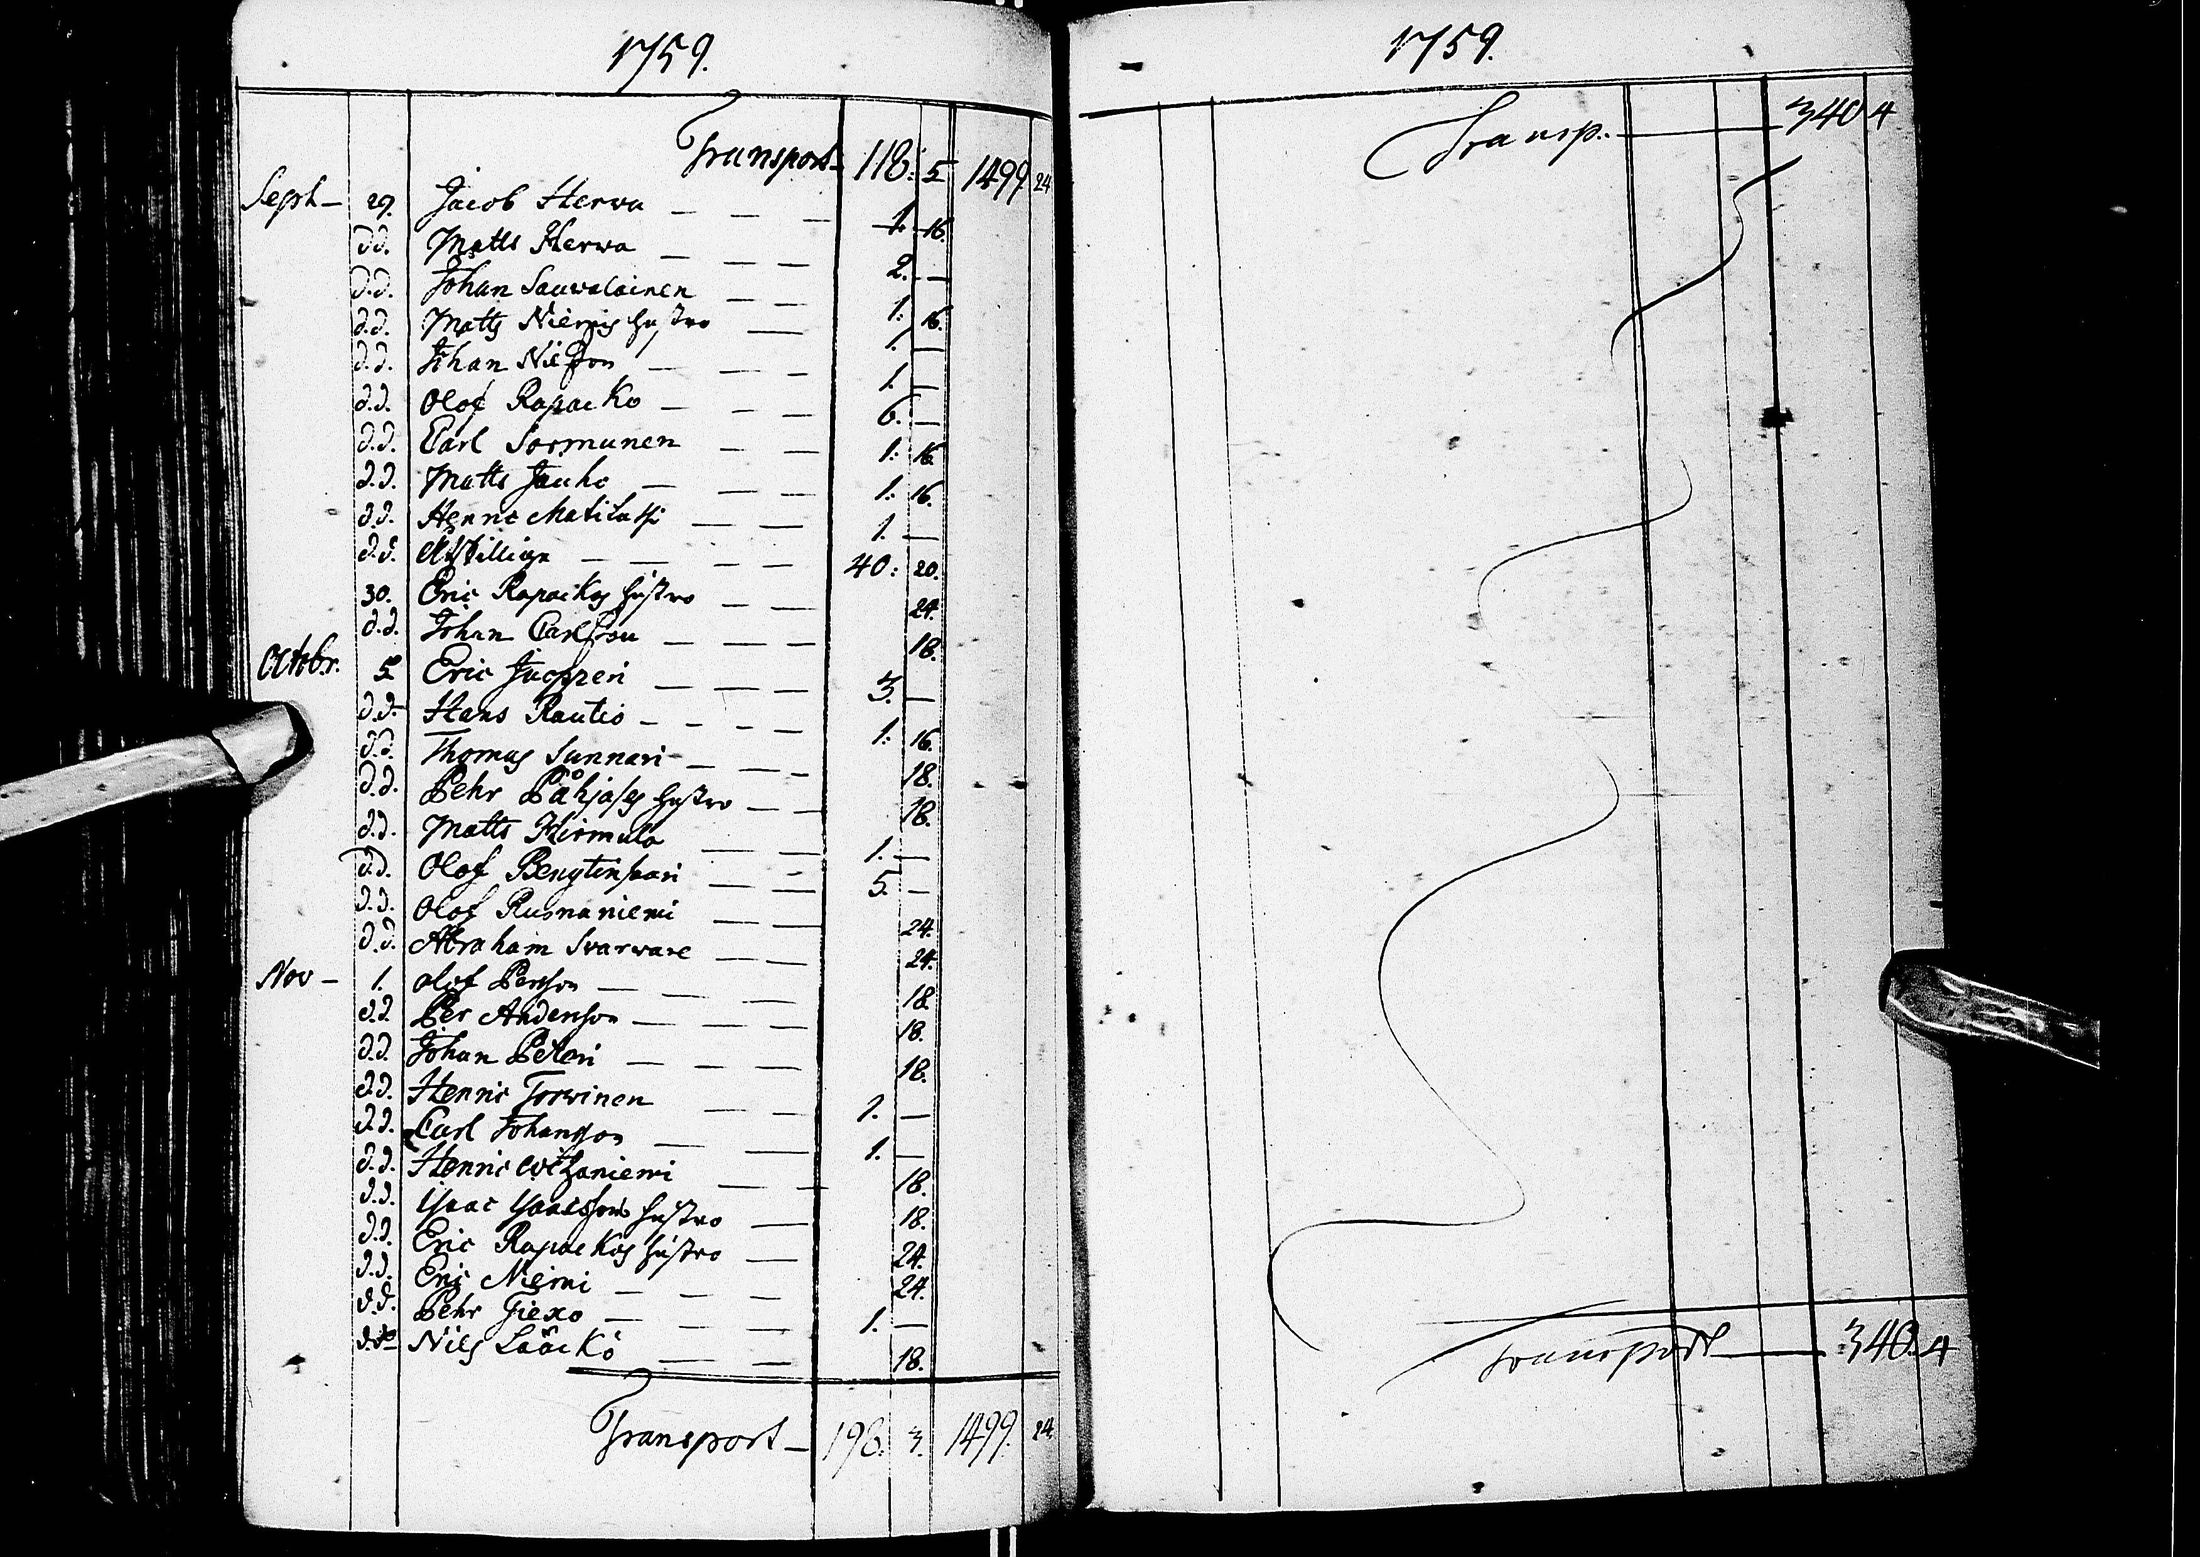 1759.
Transport 118: 5 1499 24
Sept 29. Jacob Herwa 1. 16.
d.d. Matts Herwa 2. —
d.d. Johan Sauwolainen 1. 16.
d.d. Matts Niemis hustro 1. —
d.d. Johan Nilsson 1. —
d.d. Olof Rapacko 6. —
d.d. Carl Sormunen 1: 16
d.d. Matts Jauho 1: 16.
d.d. Henric Matilassi 1. —
d.d. 40: 20.
30. Eric Rapackos hustro 24.
d.d. Johan Carlsson 18.
Octobr. 5 Eric Juopperi 3. —
d.d. Hans Rautio 1: 16.
d.d. Thomas Sunnari 18.
d.d. Pehr hustro 18.
d.d. Matts Kirmula 1. —
d.d. Olof 5. —
d.d. Olof Rusnaniemi 24.
d.d. Abraham Svarware 24.
Nov 1. Olof Persson 18.
d.d. Per Anderson 18.
d.d. Johan Peteri 18.
d.d. Henric Torvinen 1. —
d.d. Carl Johansson 1. —
d.d. Henric 18.
d.d. Isaac Isaacssons hustro 18.
d.d. Eric Rapackos hustro 24.
d.d. Eric Niemi 24.
d.d. Pehr Giexo 1. —
d.to Nils Lååckö 18.
Transport 198. 3. 1499. 24
1759.
Transp. 340 4
Transport 340. 4